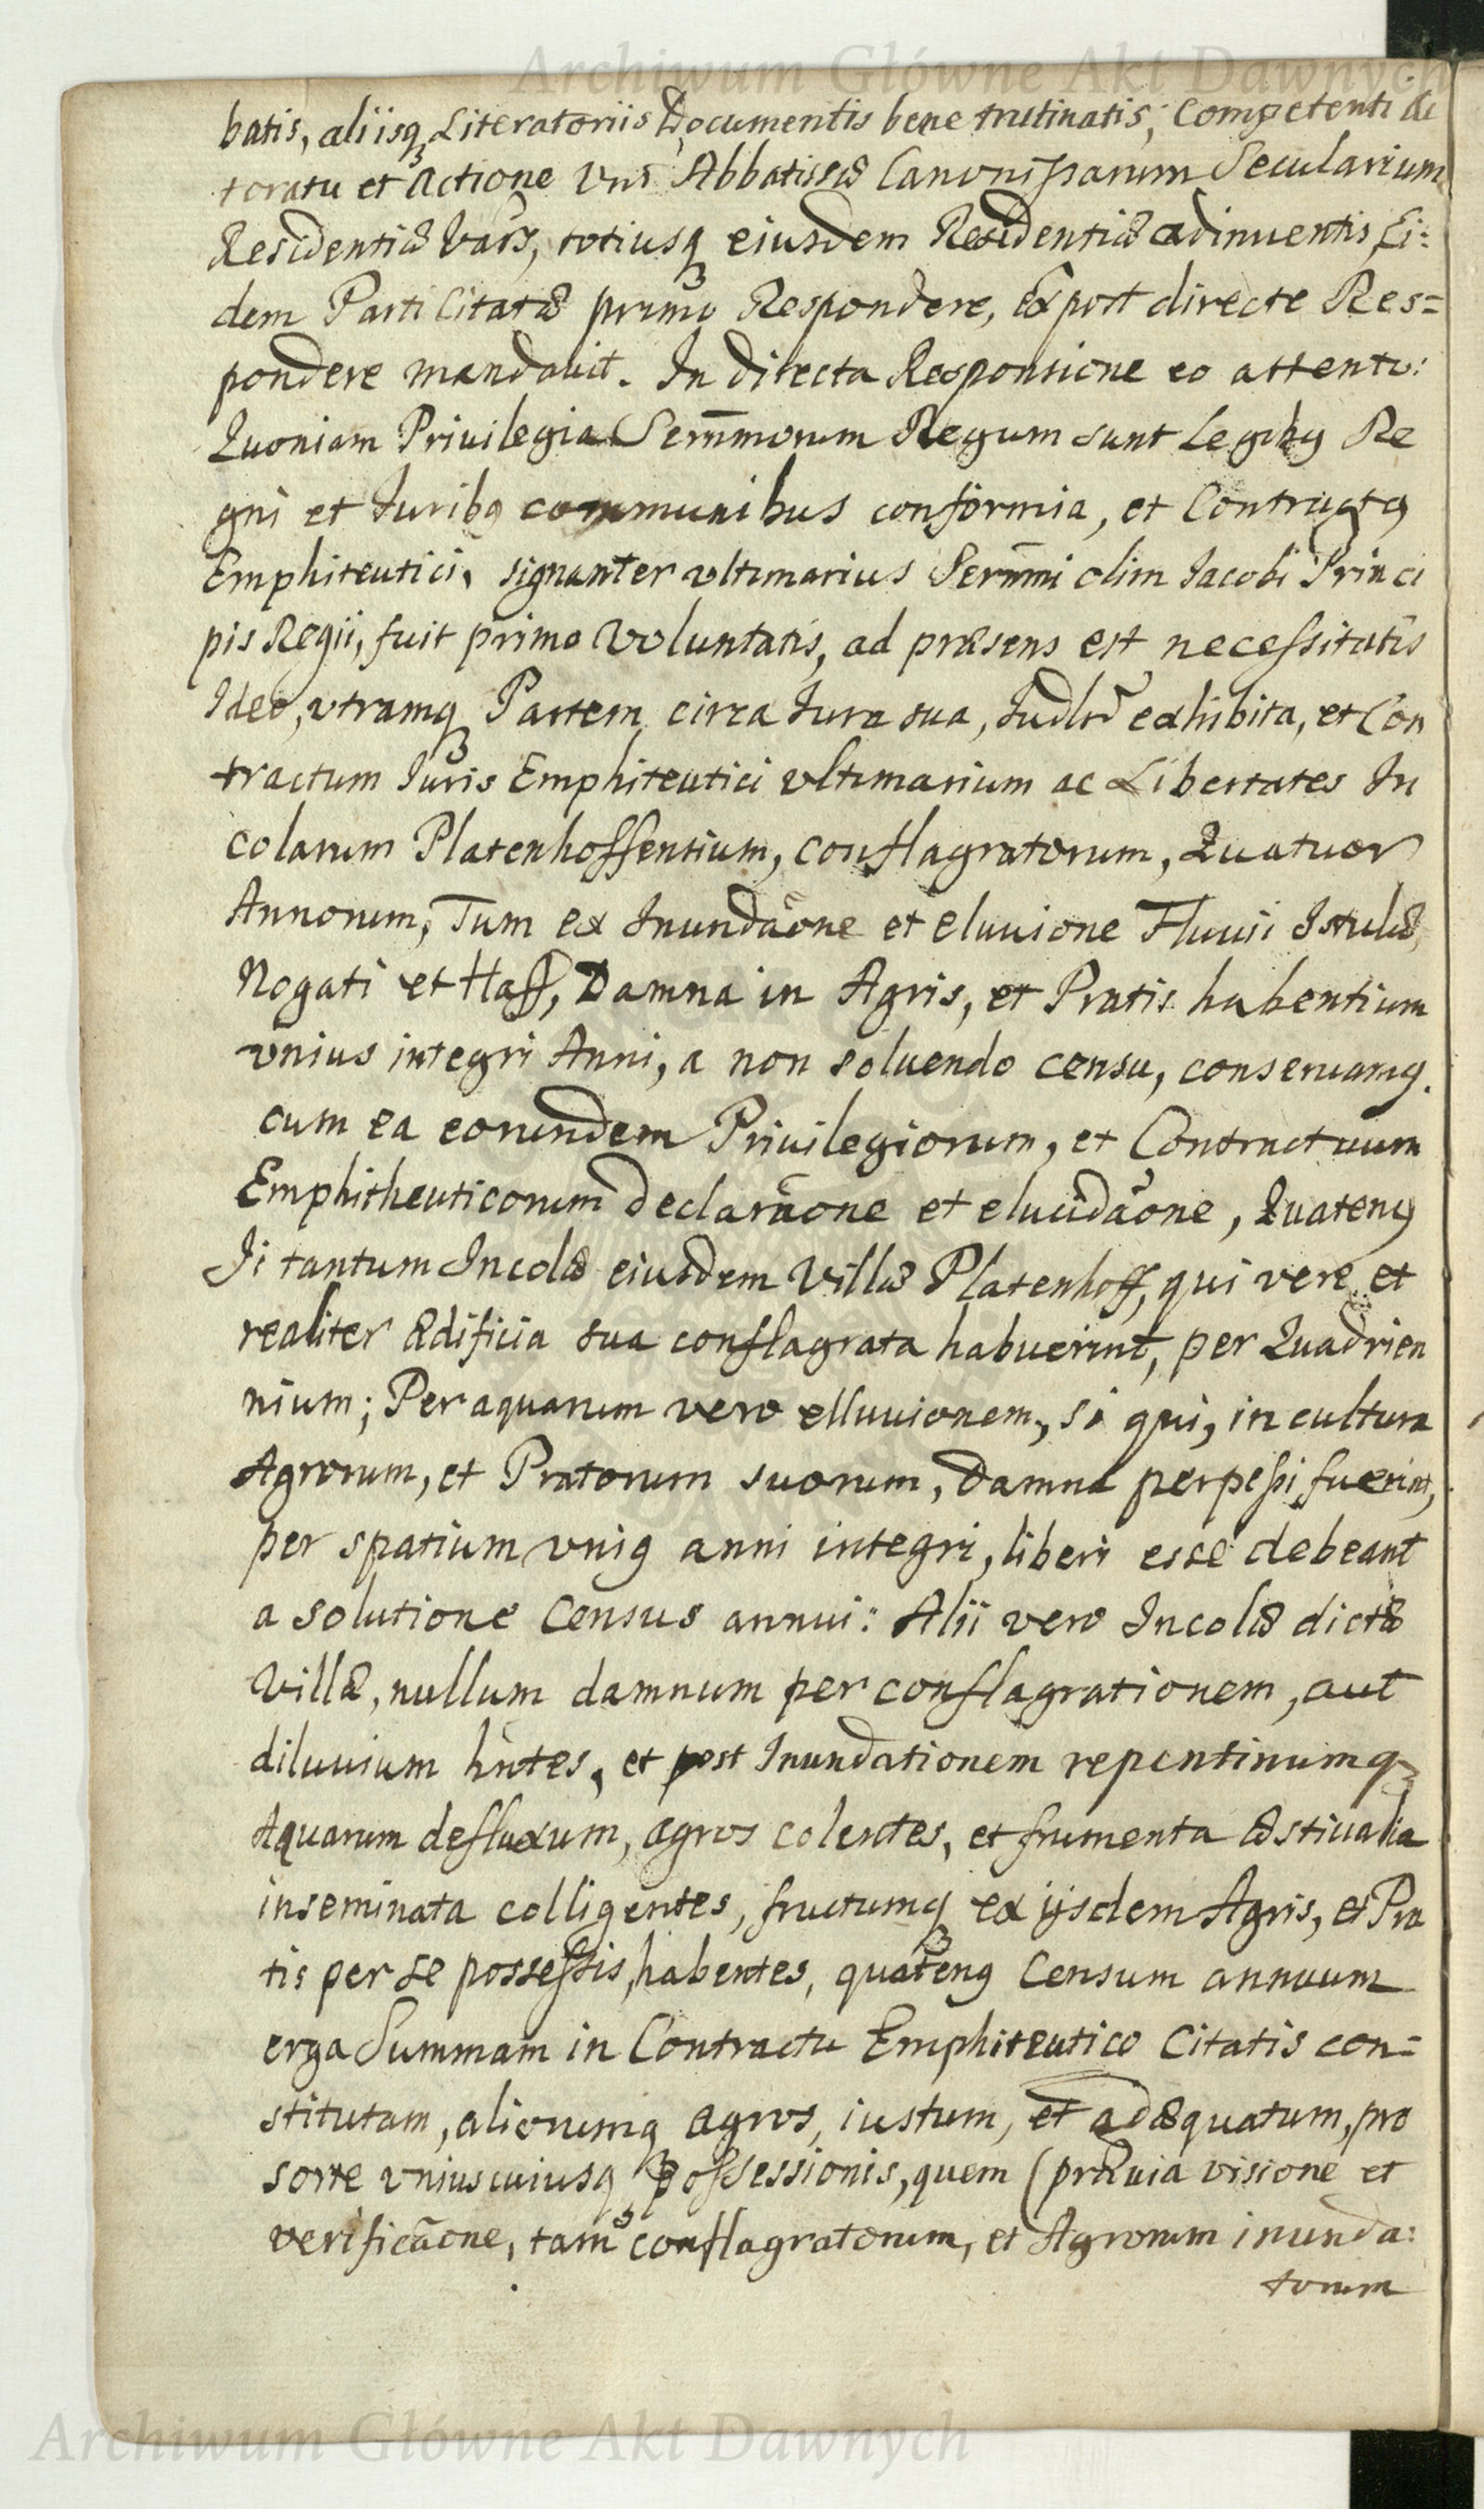 Archiwum Główne Akt Dawnych
batis, aliisq Literatoriis Documentis bene trutinatis, Competenti Ac
toratu et Actione Vnt Abbatissæ Canonissarum Secularium
Residentiæ Vars, totiusq eiusdem Residentiæ adinventis, Ei:
dem Parti Citatæ primo Respondere, Ex post directe Res=
pondere mandavit. In directa Responsione eo attento:
Quoniam Privilegia Sermmorum Regum sunt Legibq Re
gni et Juribq communibus conformia, et Contractq
Emphiteutici, signanter vltimarius Sermmi olim Jacobi Princi
pis Regii, fuit primo Voluntatis, ad præsens est necessitatis
Ideo, vtramq Partem circa Jura sua, exhibita, et Con
tractum Juris Emphiteutici vltimarium ac Libertates In
colarum Platenhoffensium, conflagratorum, Quatuor
Annorum, Tum ex Inundaone et eluvione Fluvii Istulæ,
Nogati et Haff, Damna in Agris, et Pratis habentium
vnius integri Anni, a non solvendo censu, conservamq.
cum ea eorundem Privilegiorum, et Contractuum
Emphitheuticorum declaraone et elucidaone, Quatenq
Ii tantum Incolæ eiusdem Villæ Platenhoff, qui vere et
realiter ædificia sua conflagrata habuerint, per Quadrien
nium; Per aquarum vero elluvionem, si qui, in cultura
Agrorum, et Pratorum suorum, Damna perpessi fuerint,
per spatium vniq anni integri, liberi esse debeant
a solutione Census annui: Alii vero Incolæ dictæ
Villæ, nullum damnum per conflagrationem, aut
diluvium hntes, et post Inundationem repentinumq
Aquarum defluxum, agros colentes, et frumenta æstivalia
inseminata colligentes, fructumq ex ijsdem Agris, et Pra
tis per se possessis, habentes, quatenq Censum annuum
erga Summam in Contractu Emphiteutico Citatis con=
stitutam, aliorumq agros, iustum, et adæquatum, pro
sorte vniuscuiusq possessionis, quem (prævia visione et
verificaone, tam conflagratorum, et Agrorum inunda:
torum
Archiwum Główne Akt Dawnych